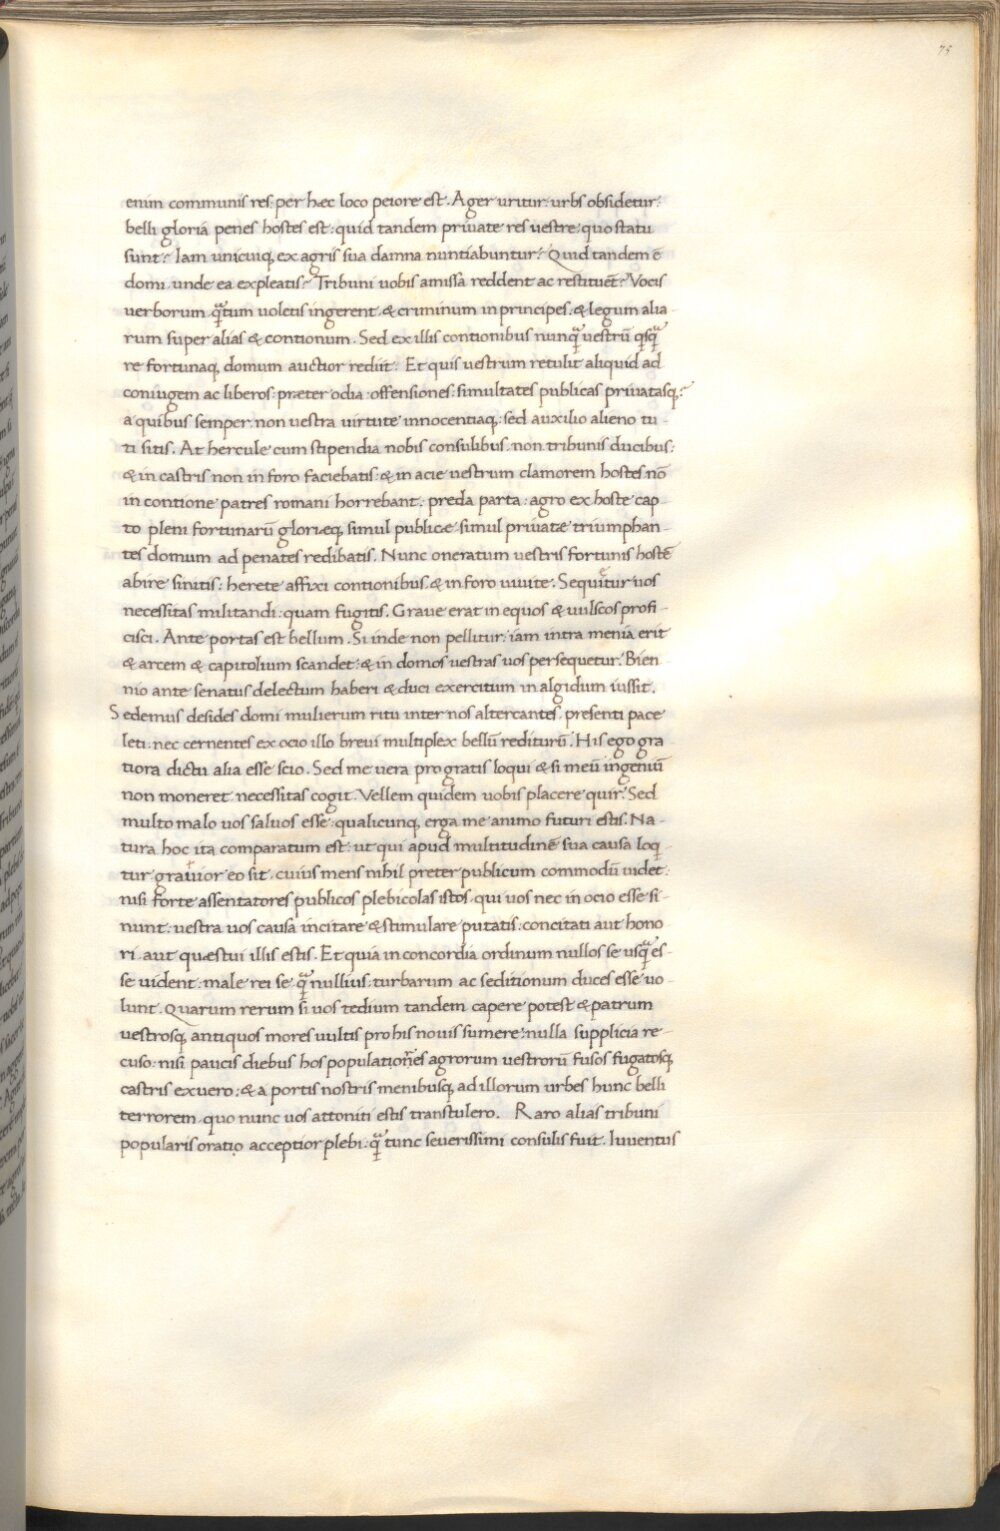 75
enim communis res: per hæc loco peiore est. Ager uritur: urbs obsidetur:
belli gloria penes hostes est: quid tandem priuate res uestre: quo statu
sunt? Iam unicuiq; ex agris sua damna nuntiabuntur? Quid tandem ē
domi unde ea expleatis? Tribuni uobis amissa reddent ac restituēt? Vocis
uerborum q̄tum uoletis ingerent & criminum in principes: & legum alia
rum super alias & contionum. Sed ex illis contionibus nunq̄ uestrū q̄sq̄
re fortunaq; domum auctior rediit. Et quis uestrum retulit aliquid ad
coniugem ac liberos: præter odia: offensiones: simultates publicas priuatasq;?
a quibus semper non uestra uirtute innocentiaq; sed auxilio alieno tu-
ti sitis. At hercule cum stipendia nobis consulibus non tribunis ducibus:
& in castris non in foro faciebatis: & in acie uestrum clamorem hostes nō
in contione patres romani horrebant: preda parta: agro ex hoste cap-
to pleni fortunarū gloriæq; simul publicæ simul priuatæ triumphan-
tes domum ad penates redibatis. Nunc oneratum uestris fortunis hostē
abire sinitis: herete affixi contionibus & in foro uiuite. Sequitur uos
necessitas militandi: quam fugitis. Graue erat in equos & uulscos profi-
cisci. Ante portas est bellum. Si inde non pellitur: iam intra menia erit
& arcem & capitolium scandet: & in domos uestras uos persequetur. Bien-
nio ante senatus delectum haberi & duci exercitum in algidum iussit.
Sedemus desides domi mulierum ritu inter nos altercantes presenti pace
leti: nec cernentes ex ocio illo breui multiplex bellū rediturū. His ego gra
tiora dictu alia esse scio. Sed me uera pro gratis loqui & si meū ingeniū
non moneret necessitas cogit. Vellem quidem uobis placere quir. Sed
multo malo uos saluos esse: qualicunq; erga me animo futuri estis. Na-
tura hoc ita comparatum est: ut qui apud multitudinē sua causa loq̄
tur grauior eo sit. cuius mens nihil preter publicum commodū uidet:
nisi forte assentatores publicos plebicolas istos: qui uos nec in ocio esse si-
nunt: uestra uos causa incitare & stimulare putatis: concitati aut hono
ri aut quæstui illis estis. Et quia in concordia ordinum nullos se usq̄ es-
se uident: male rei se q̄ nullius: turbarum ac seditionum duces esse uo-
lunt. Quarum rerum si uos tedium tandem capere potest & patrum
uestrosq; antiquos mores uultis pro his nouis sumere: nulla supplicia re-
cuso: nisi paucis diebus hos populationes agrorum uestrorū fusos fugatosq;
castris exuero: & a portis nostris menibusq; ad illorum urbes hunc belli
terrorem quo nunc uos attoniti estis transtulero. Raro alias tribuni
popularis oratio acceptior plebi: q̄ tunc seuerissimi consulis fuit. Iuuentus